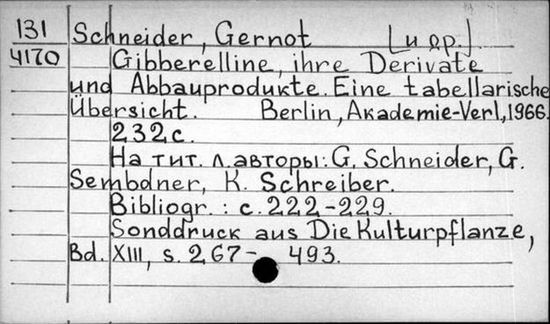 131 Schneider, Gernot [и др.]
4170 Gibberelline, ihre Derivate
und Abbauprodukte. Eine tabellarische
Übersicht. Berlin, Akademie-Verl, 1966.
232 с.
На тит. л. авторы: G. Schneider, G.
Sembdner, K. Schreiber.
Bibliogr.: с. 222-229.
Sonddruck aus Die Kulturpflanze,
Bd. XIII, s. 267- 493.